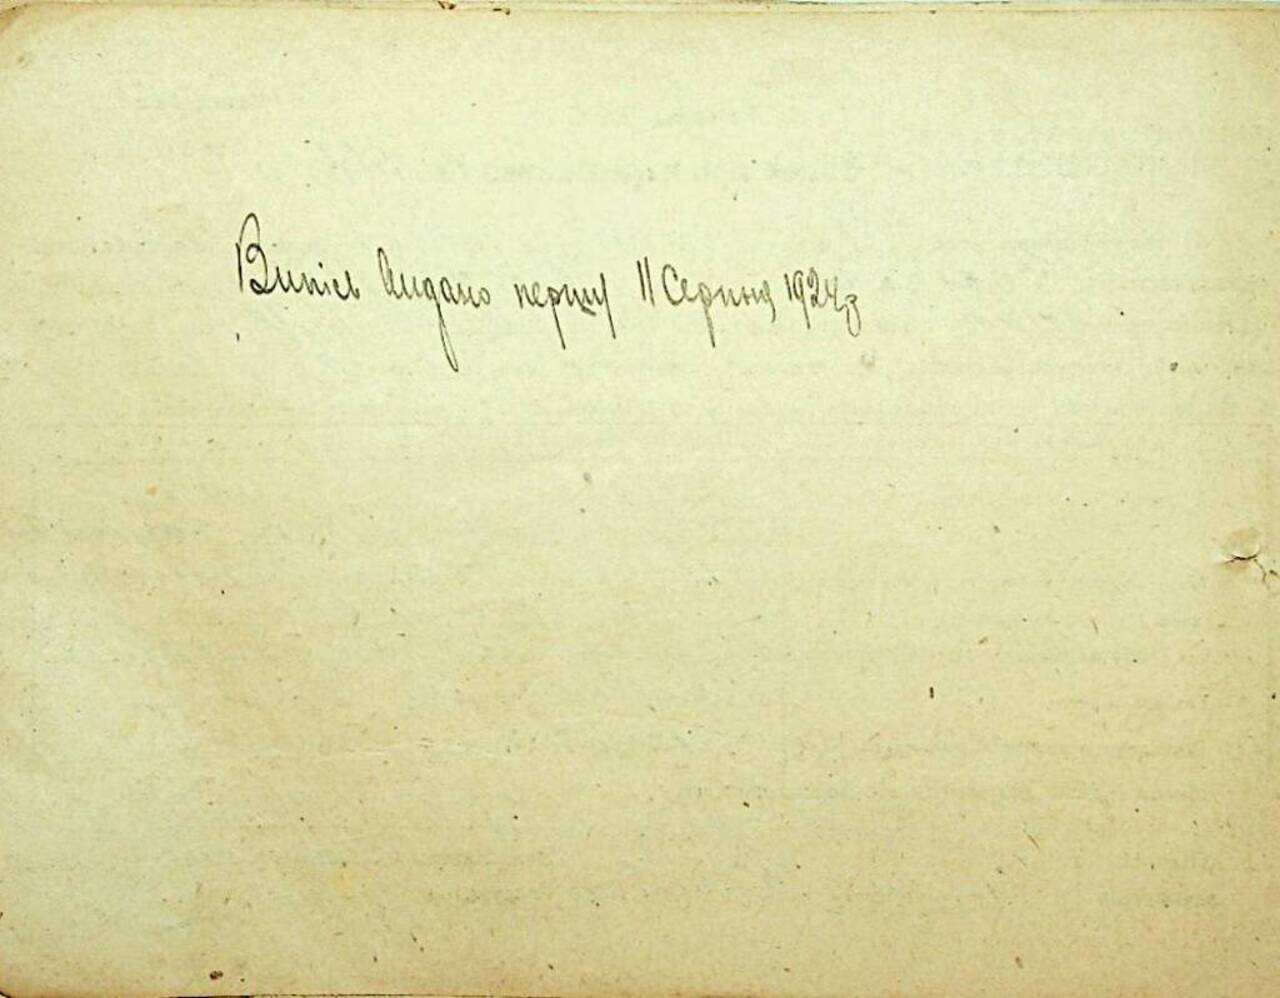 Випісь видано першу 11 Серпня 1924 р